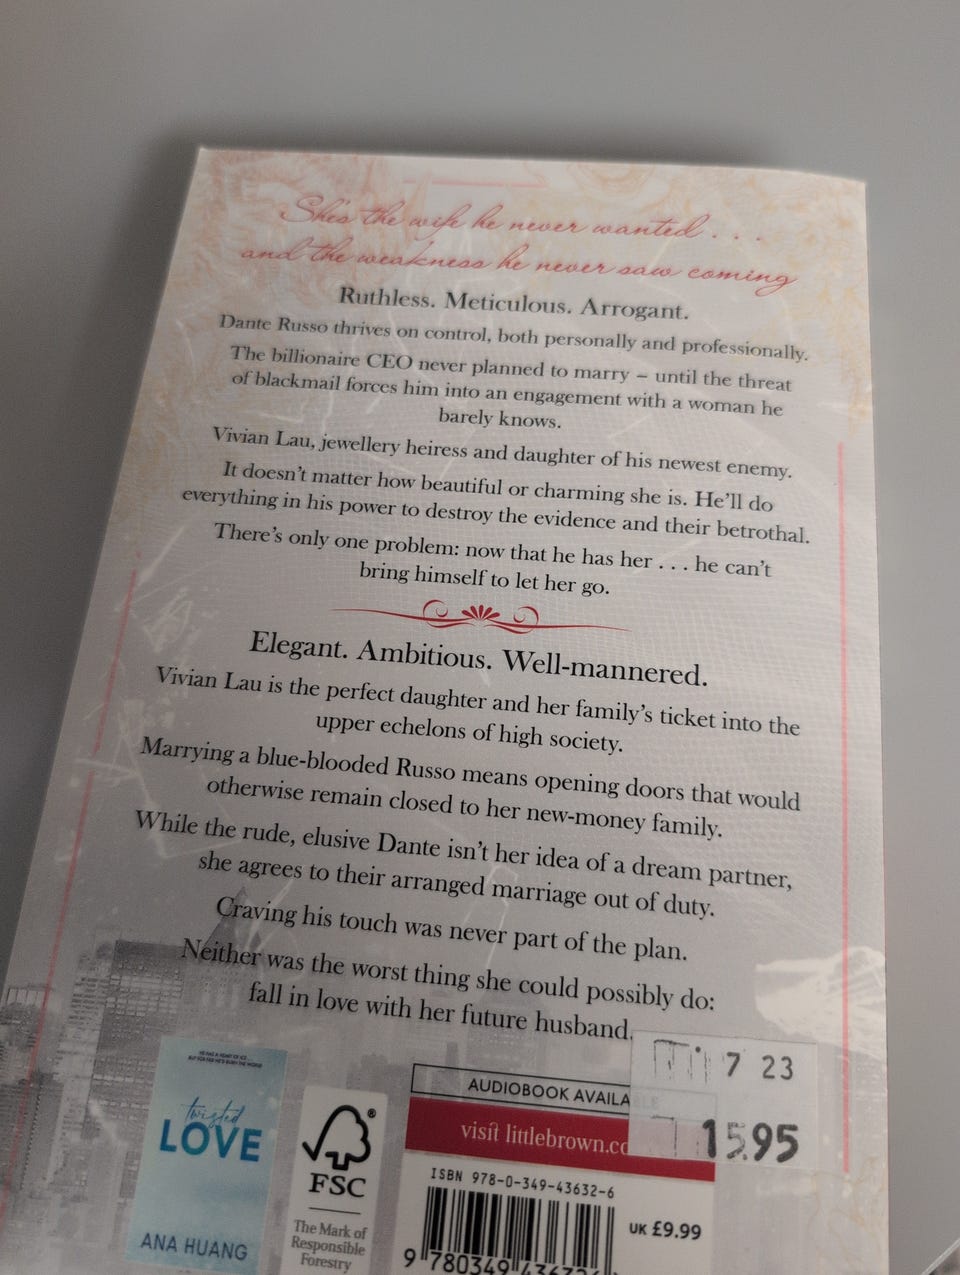 She's the wife he never wanted . . .
and the weakness he never saw coming
Ruthless. Meticulous. Arrogant.
Dante Russo thrives on control, both personally and professionally.
The billionaire CEO never planned to marry – until the threat
of blackmail forces him into an engagement with a woman he
barely knows.
Vivian Lau, jewellery heiress and daughter of his newest enemy.
It doesn't matter how beautiful or charming she is. He'll do
everything in his power to destroy the evidence and their betrothal.
There's only one problem: now that he has her . . . he can't
bring himself to let her go.
Elegant. Ambitious. Well-mannered.
Vivian Lau is the perfect daughter and her family's ticket into the
upper echelons of high society.
Marrying a blue-blooded Russo means opening doors that would
otherwise remain closed to her new-money family.
While the rude, elusive Dante isn't her idea of a dream partner,
she agrees to their arranged marriage out of duty.
Craving his touch was never part of the plan.
Neither was the worst thing she could possibly do:
fall in love with her future husband.
7 23
15.95
HE HAS A HEART OF ICE ...
BUT FOR HER HE'D BURN THE WORLD
twisted
LOVE
ANA HUANG
®
FSC
The Mark of
Responsible
Forestry
AUDIOBOOK AVAILABLE
visit littlebrown.co
ISBN 978-0-349-43632-6
UK £9.99
9 780349 436326